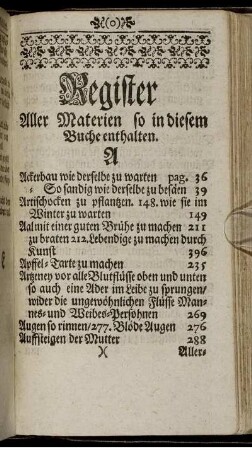 (o)
Register
Aller Materien so in diesem
Buche enthalten.
A
Ackerbau wie derselbe zu warten pag. 36
- So sandig wie derselbe zu besäen 39
Artischocken zu pflantzen. 148. wie sie im
Winter zu warten 149
Aal mit einer guten Brühe zu machen 211
zu braten 212. Lebendige zu machen durch
Kunst 396
Apffel-Tarte zu machen 235
Artzeney vor alle Blutflüsse oben und unten
so auch eine Ader im Leibe zu sprungen/
wider die ungewöhnlichen Flüsse Man-
nes- und Weibes-Persohnen 269
Augen so rinnen/277. Blöde Augen 276
Auffsteigen der Mutter 288
X Aller-